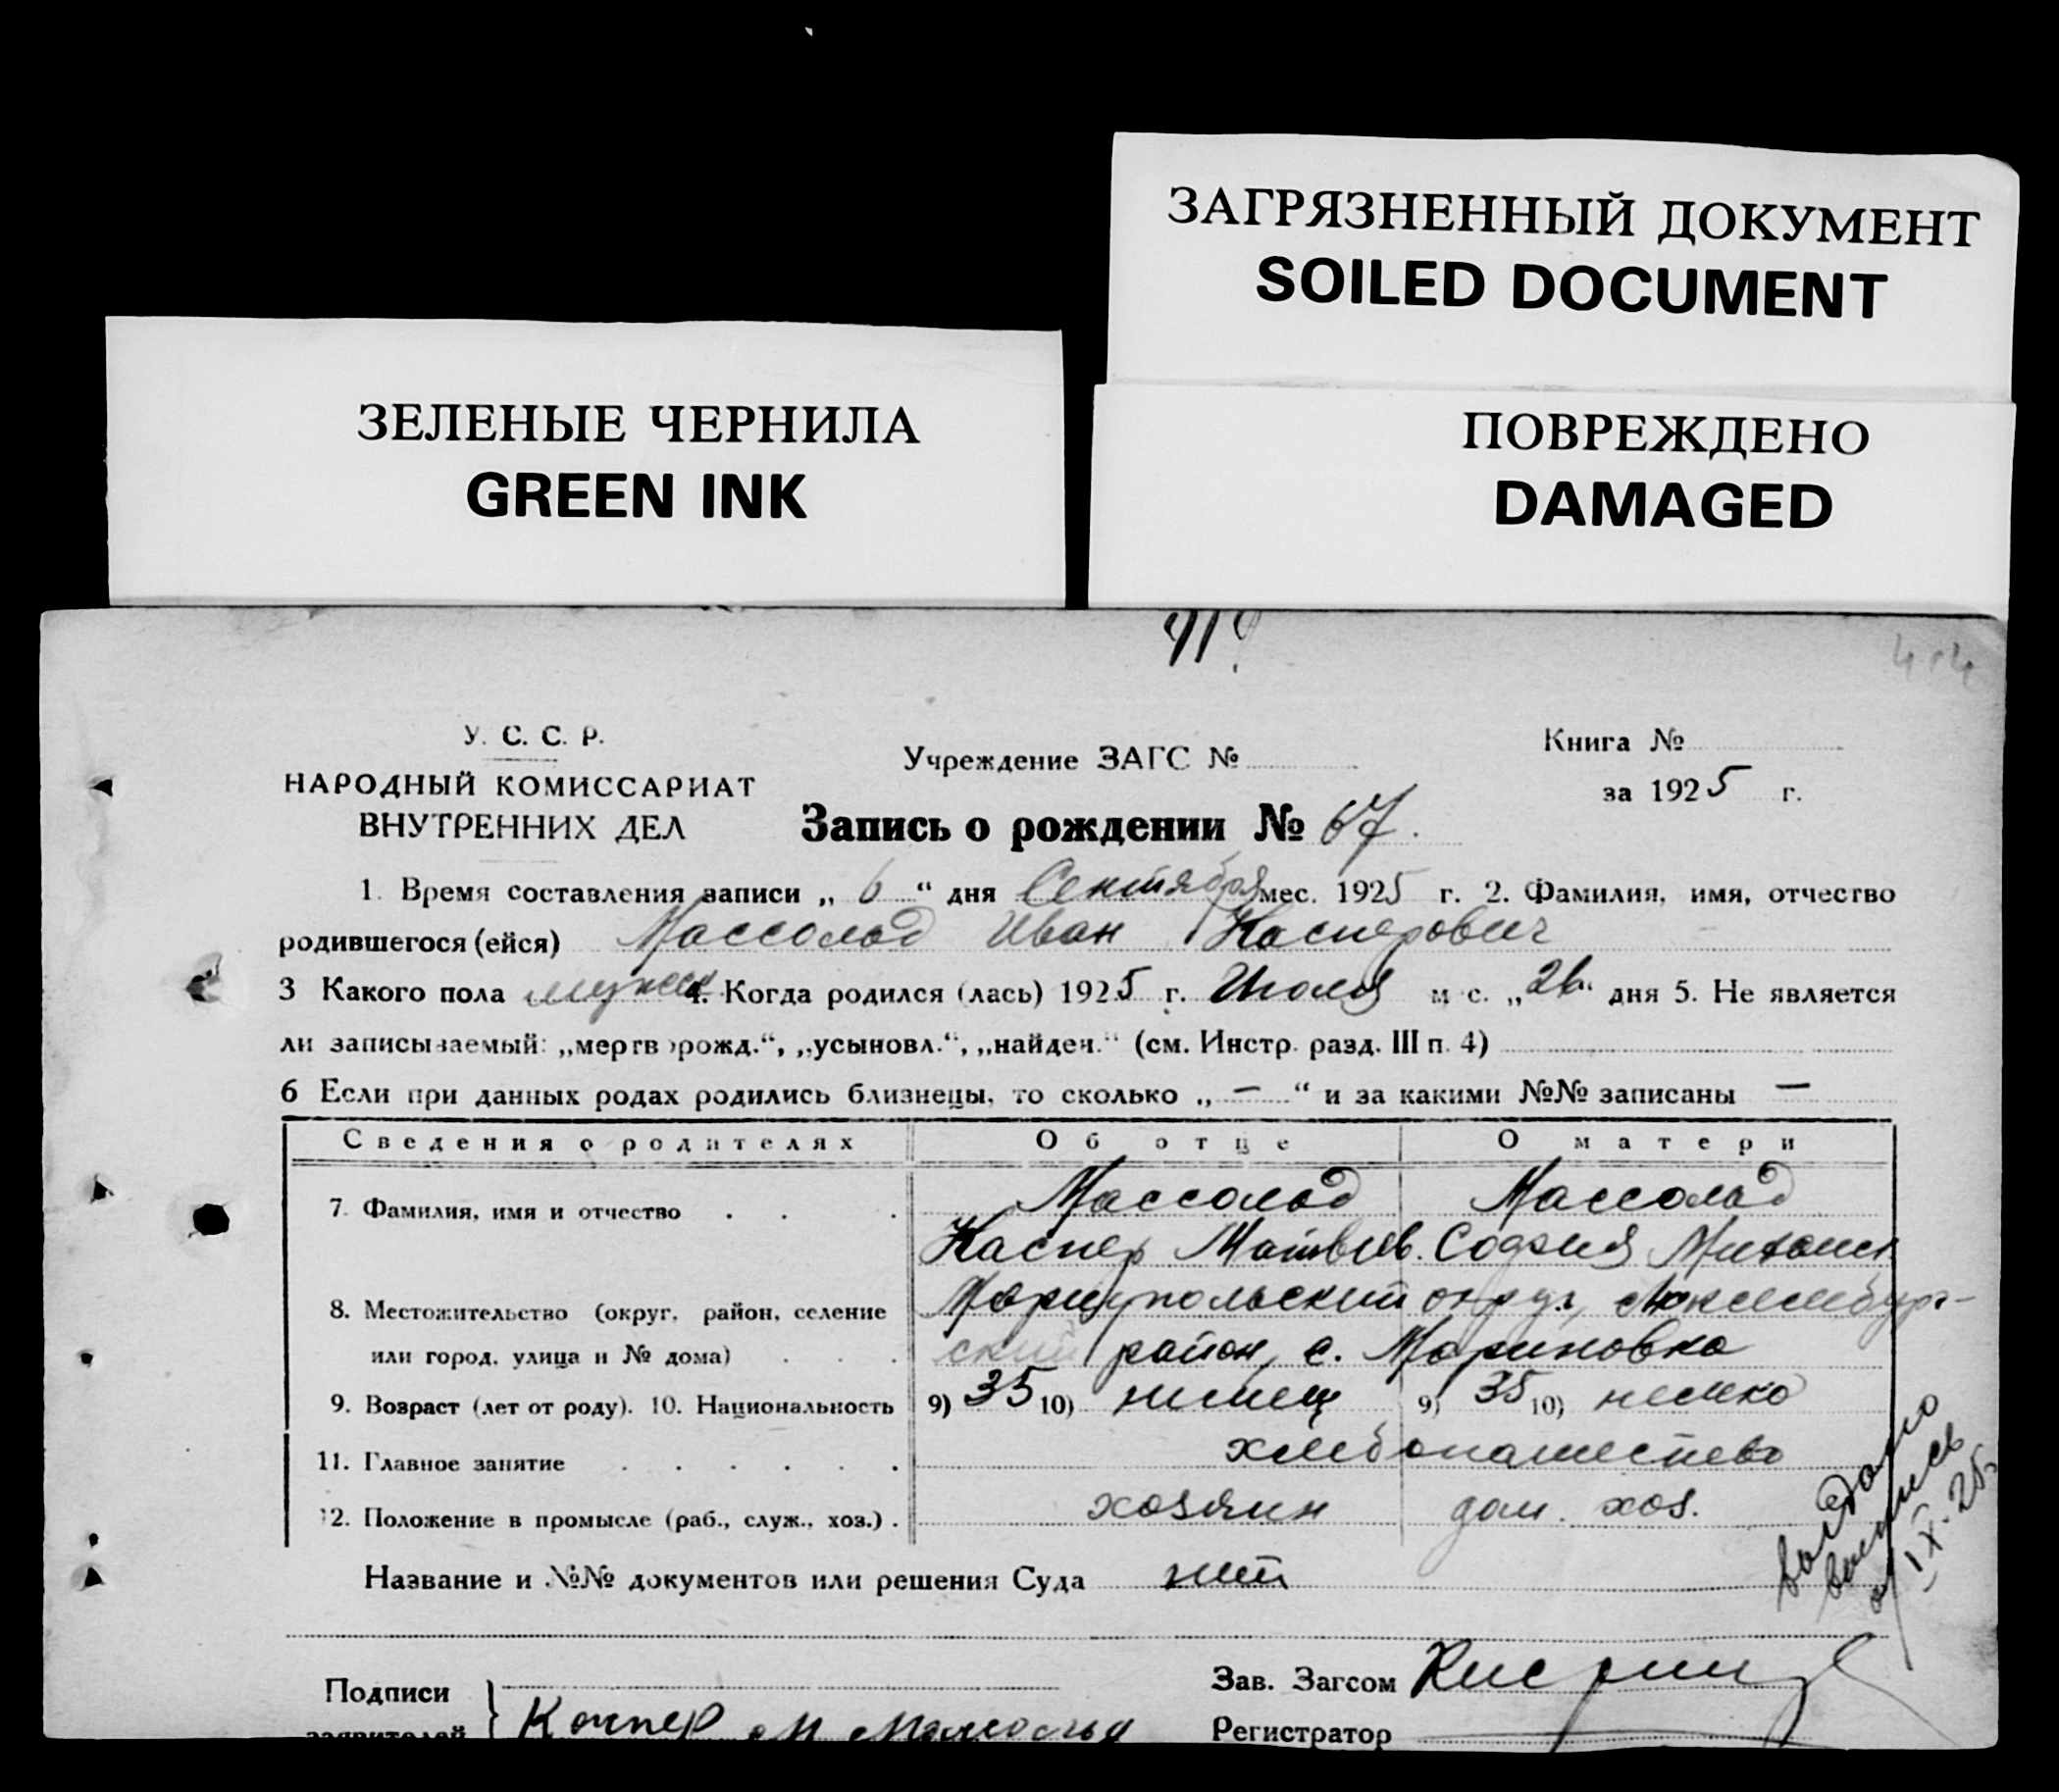 ЗАГРЯЗНЕННЫЙ ДОКУМЕНТ
SOILED DOCUMENT
ЗЕЛЕНЫЕ ЧЕРНИЛА
GREEN INK
ПОВРЕЖДЕНО
DAMAGED
У. С. С. Р.
НАРОДНЫЙ КОМИССАРИАТ
ВНУТРЕННИХ ДЕЛ
Учреждение ЗАГС №
Книга №
за 1925 г.
Запись о рождении № 67.
1. Время составления записи „ 6 “ дня Сентября мес. 1925 г. 2. Фамилия, имя, отчество
родившегося (ейся) Массольд Иван Касперович
3 Какого пола мужск 4. Когда родился (лась) 1925 г. Июля м с. „26“ дня 5. Не является
ли записываемый: „мертворожд.“, „усыновл.“, „найден.“ (см. Инстр. разд. III п. 4)
6 Если при данных родах родились близнецы, то сколько „ — “ и за какими №№ записаны —
Сведения о родителях Об отце О матери
7. Фамилия, имя и отчество Массольд Массольд
Каспер Матвеев. София
8. Местожительство (округ, район, селение Мариупольский округ, Люксембург-
или город, улица и № дома) ский район, с. Мариновка
9. Возраст (лет от роду). 10. Национальность 9) 35 10) немец 9) 35 10) немка
11. Главное занятие хлебопашество
12. Положение в промысле (раб., служ., хоз.) хозяин дом. хоз.
Название и №№ документов или решения Суда нет
выдана
выпись
IX-25
Подписи
заявителей
Каспер М Массольд
Зав. Загсом
Регистратор